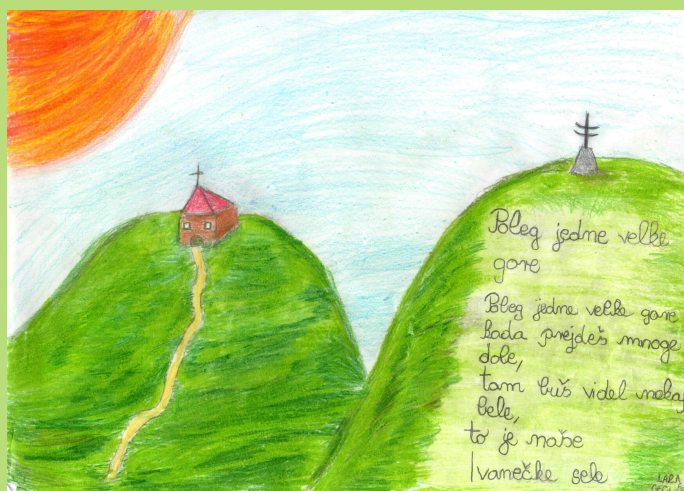 Poleg jedne velke
gore
Poleg jedne velke gore
kada prejdeš mnoge
dole,
tam buš videl nekaj
bele,
to je naše
Ivanečke sele
LARA